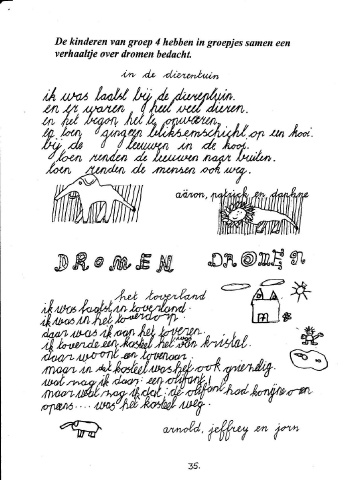 De kinderen van groep 4 hebben in groepjes samen een
verhaaltje over dromen bedacht.
in de dierentuin
ik was laatst bij de dierentuin.
en er waren heel veel dieren.
en het begon het te onweren.
en toen gingen bliksemschicht op een kooi.
bij de leeuwen in de kooi.
toen renden de leeuwen naar buiten.
toen renden de mensen ook weg.
aäron, patrick en daphne
DROMEN DROMEN
het toverland
ik was laatst in toverland.
ik was in het toverdorp.
daar was ik aan het toveren.
ik toverde een kasteel het was van kristal.
daar woont een tovenaar.
maar in kasteel was het ook griendig.
wat zag ik daar een olifant!
maar wat zag ik dat de olifant had
opeens.... was het kasteel weg.
arnold, jeffrey en jorn
35.